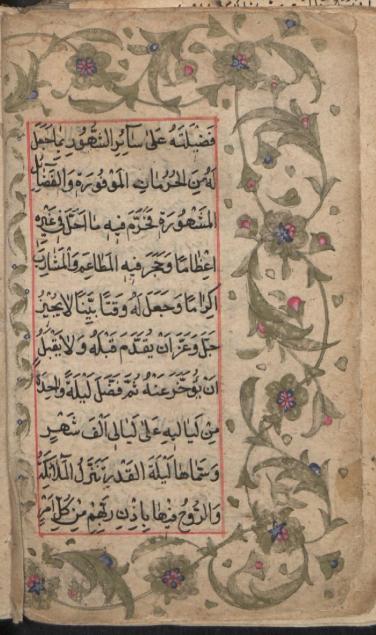 فَضِيلَتَهُ عَلَى سَائِرِ الشُّهُورِ بِمَا جَعَلَ
لَهُ مِنَ الْحُرُمَاتِ الْمَوْفُورَةِ وَالْفَضَائِلِ
الْمَشْهُورَةِ فَحَرَّمَ فِيهِ مَا اَحَلَّ فِي غَيْرِهِ
اِعْظَامًا وَحَجَرَ فِيهِ الْمَطَاعِمَ وَالْمَشَارِبَ
اِكْرَامًا وَجَعَلَ لَهُ وَقْتًا بَيِّنًا لَا يُجِيزُ
جَلَّ وَعَزَّ اَنْ يُقَدَّمَ قَبْلَهُ وَلَا يَقْبَلُ
اَنْ يُؤَخَّرَ عَنْهُ ثُمَّ فَضَّلَ لَيْلَةً وَاحِدَةً
مِنْ لَيَالِيهِ عَلَى لَيَالِي اَلْفِ شَهْرٍ
وَسَمَّاهَا لَيْلَةَ الْقَدْرِ تَنَزَّلُ الْمَلَائِكَةُ
وَالرُّوحُ فِيهَا بِاِذْنِ رَبِّهِمْ مِنْ كُلِّ اَمْرٍ